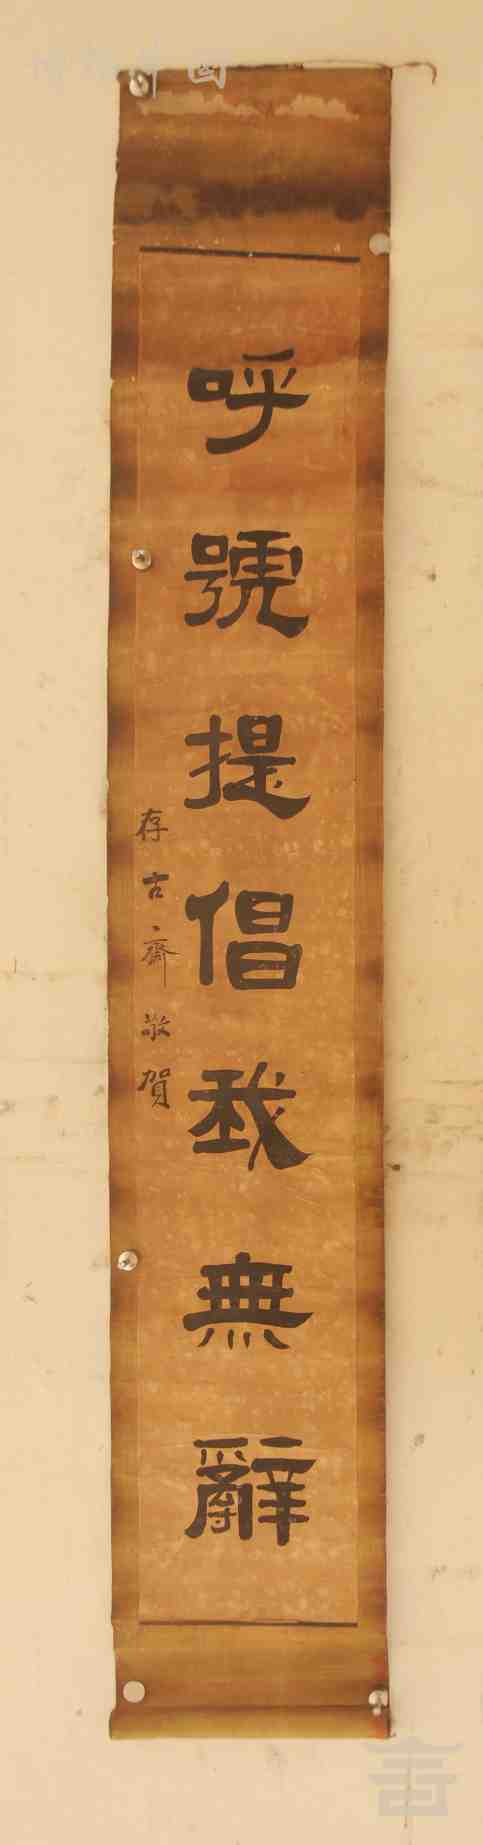 呼號提倡我無辭
存古齋敬賀